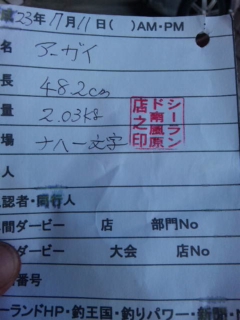 成23年7月11日( )AM・PM
名 アーガイ
長 48.2cm
量 2.03kg
場 ナハ一文字
シーラン
ド南風原
店之印
人
認者・同行人
間ダービー 店 部門No
ダービー 大会 店No
番号
ーランドHP・釣王国・釣りパワー・新聞・